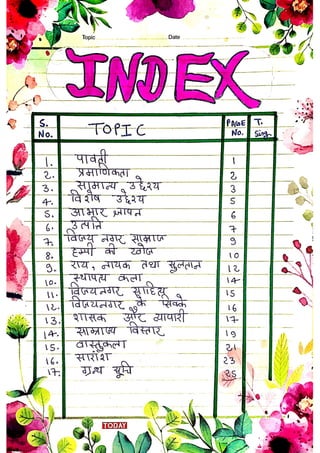 Topic Date
INDEX
S. No. TOPIC PAGE No. T. Sign
1. पावती 1
2. प्रमाणिकता 2
3. सामान्य उद्देश्य 3
4. विशेष उद्देश्य 5
5. आभार ज्ञापन 6
6. उत्पत्ति 7
7. विजय नगर साम्राज्य 9
8. हम्पी की खोज 10
9. राय, नायक तथा सुल्तान 12
10. स्थापत्य कला 14
11. विजयनगर साहित्य 15
12. विजयनगर के सिक्के 16
13. शासक और व्यापारी 17
14. साम्राज्य विस्तार 19
15. वास्तुकला 21
16. सारांश 23
17. ग्रंथ सूचि 25
TODAY